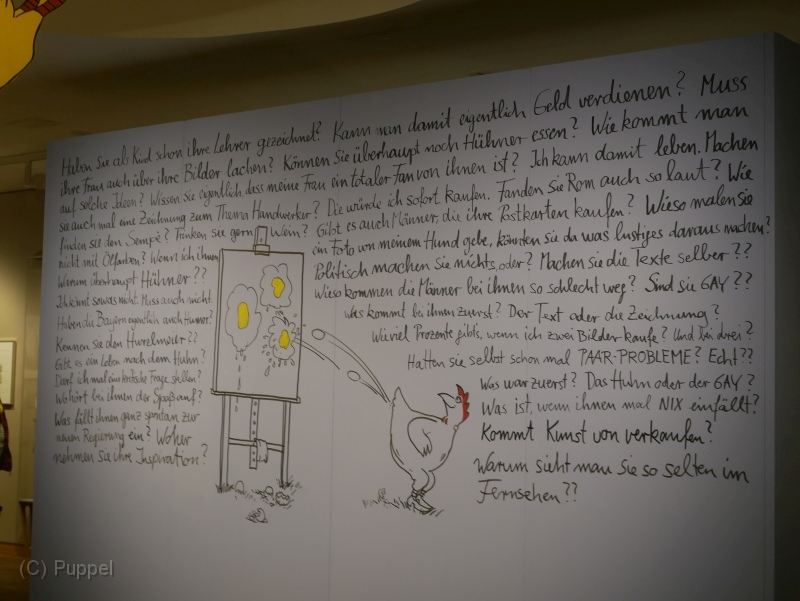 Haben Sie als Kind schon ihre Lehrer gezeichnet? Kann man damit eigentlich Geld verdienen? Muss
ihre Frau auch über ihre Bilder lachen? Können Sie überhaupt noch Hühner essen? Wie kommt man
auf solche Ideen? Wissen Sie eigentlich, dass meine Frau ein totaler Fan von ihnen ist? Ich kann damit leben. Machen
sie auch mal eine Zeichnung zum Thema Handwerker? Die würde ich sofort kaufen. Fanden sie Rom auch so laut? Wie
finden sie den Sempé? Trinken sie gern Wein? Gibt es auch Männer, die ihre Postkarten kaufen? Wieso malen sie
nicht mit Ölfarben? Wenn ich ihnen ein Foto von meinem Hund gebe, könnten sie da was lustiges daraus machen?
Warum überhaupt Hühner?? Politisch machen Sie nichts, oder? Machen sie die Texte selber??
Ich könnt sowas nicht. Muss auch nicht. Wieso kommen die Männer bei ihnen so schlecht weg? Sind sie GAY??
Haben die Bayern eigentlich auch Humor? Was kommt bei ihnen zuerst? Der Text oder die Zeichnung?
Kennen Sie den Hurzlmeier?? Wieviel Prozente gibt's, wenn ich zwei Bilder kaufe? Und bei drei?
Gibt es ein Leben nach dem Huhn? Hatten sie selbst schon mal PAAR-PROBLEME? Echt??
Darf ich mal eine kritische Frage stellen? Was war zuerst? Das Huhn oder der GAY?
Wo hört bei ihnen der Spaß auf? Was ist, wenn ihnen mal NIX einfällt?
Was fällt ihnen ganz spontan zur Kommt Kunst von verkaufen?
neuen Regierung ein? Woher Warum sieht man Sie so selten im
nehmen sie ihre Inspiration? Fernsehen??
(C) Puppel